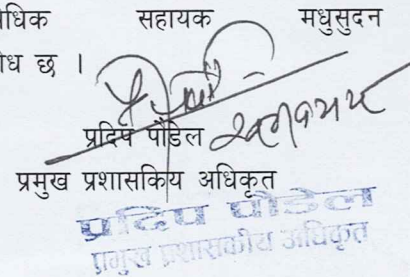 धिक सहायक मधुसुदन
ध छ ।
प्रदिप पौडेल
प्रमुख प्रशासकिय अधिकृत
प्रदिप पौडेल
प्रमुख प्रशासकीय अधिकृत